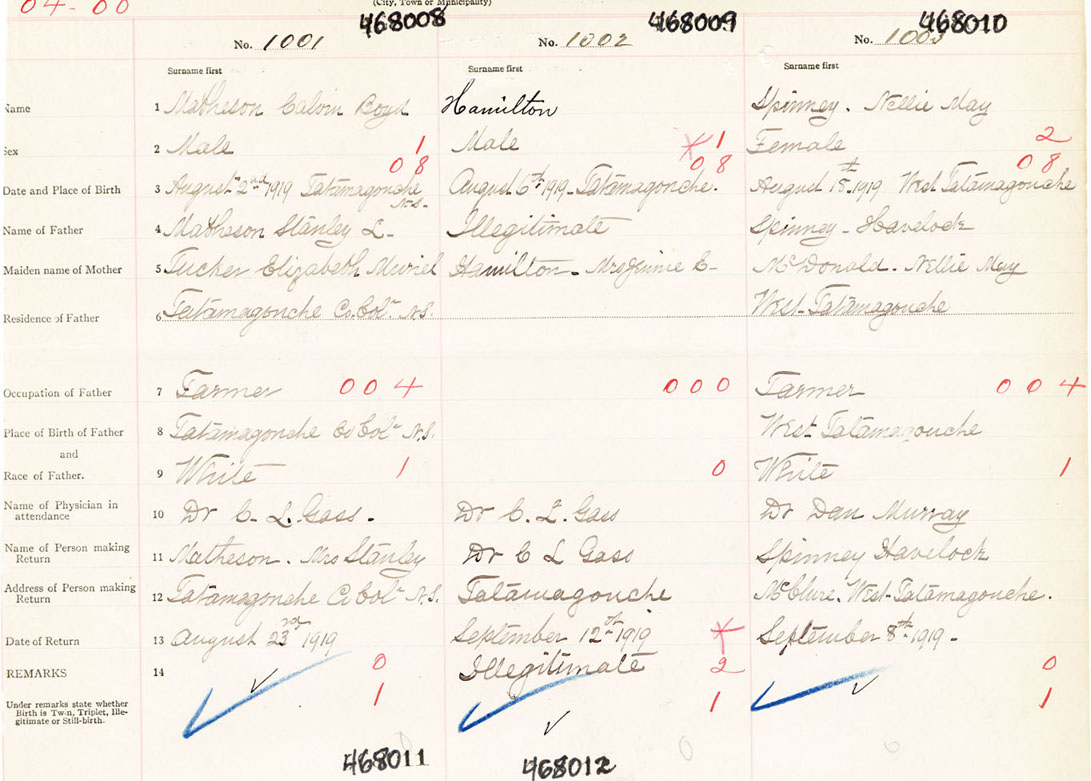 04-00
(City, Town or Municipality)
468008 468009 468010
No. 1001 No. 1002 No. 1003
Surname first Surname first Surname first
Name 1 Matheson Calvin Boyd Hamilton Spinney. Nellie May
Sex 2 Male 1 Male X 1 Female 2
08 08 08
Date and Place of Birth 3 August 2nd 1919 Tatamagouche August 6th 1919 - Tatamagouche. August 15th 1919 West Tatamagouche
N.S.
Name of Father 4 Matheson Stanley L- Illegitimate Spinney - Havelock
Maiden name of Mother 5 Tucker Elizabeth Muriel Hamilton - Mrs Jennie C- McDonald. Nellie May
Residence of Father 6 Tatamagouche Co. Col. N.S. West-Tatamagouche
Occupation of Father 7 Farmer 004 000 Farmer 004
Place of Birth of Father 8 Tatamagouche Co Col. N.S. West-Tatamagouche
and
Race of Father. 9 White 1 0 White 1
Name of Physician in
attendance 10 Dr C. L. Gass. Dr C. L. Gass Dr Dan Murray
Name of Person making
Return 11 Matheson. Mrs Stanley Dr C L Gass Spinney Havelock
Address of Person making
Return 12 Tatamagouche Co Col. N.S. Tatamagouche McClure. West-Tatamagouche.
Date of Return 13 August 23rd 1919 September 12th 1919 X September 8th 1919 -
REMARKS 14 0 Illegitimate 2 0
Under remarks state whether
Birth is Twin, Triplet, Ille-
gitimate or Still-birth. 1 1 1
468011 468012